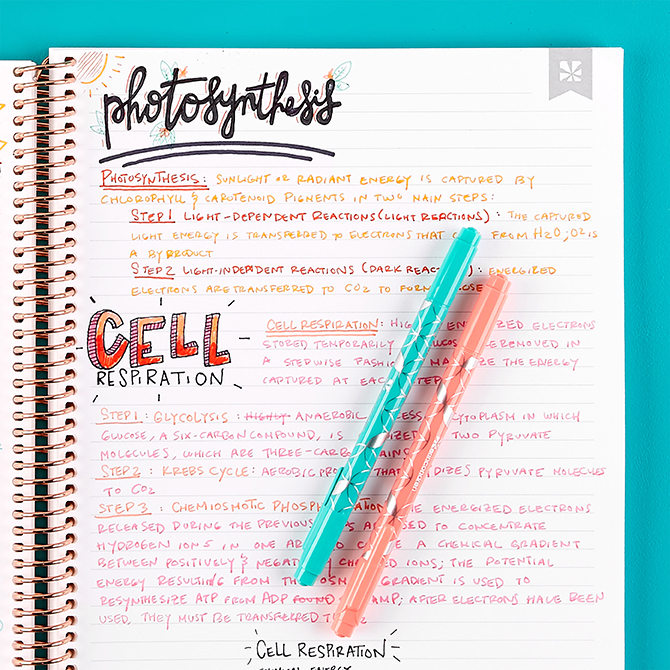 photosynthesis
PHOTOSYNTHESIS: SUNLIGHT OR RADIANT ENERGY IS CAPTURED BY
CHLOROPHYLL & CAROTENOID PIGMENTS IN TWO MAIN STEPS:
STEP 1 LIGHT-DEPENDENT REACTIONS (LIGHT REACTIONS): THE CAPTURED
LIGHT ENERGY IS TRANSFERRED TO ELECTRONS THAT FROM H2O; O2 IS
A BYPRODUCT
STEP 2 LIGHT-INDEPENDENT REACTIONS (DARK REAC : ENERGIZED
ELECTRONS ARE TRANSFERRED TO CO2 TO FORM OSE
CELL
RESPIRATION
CELL RESPIRATION: HIG EN ZED ELECTRONS
STORED TEMPORARILY UCOS E REMOVED IN
A STEPWISE FASHI MA ZE THE ENERGY
CAPTURED AT EAC TEP
STEP 1: GLYCOLYSIS: HIGHLY ANAEROBIC ESS YTOPLASM IN WHICH
GLUCOSE, A SIX-CARBON COMPOUND, IS DIZE TWO PYRUVATE
MOLECULES, WHICH ARE THREE-CARB AINS
STEP 2: KREBS CYCLE: AEROBIC PRO THAT DIZES PYRUVATE MOLECULES
TO CO2
STEP 3: CHEMIOSMOTIC PHOSPH ATION HE ENERGIZED ELECTRONS
RELEASED DURING THE PREVIOUS PS A SED TO CONCENTRATE
HYDROGEN IONS IN ONE AR TO C E A CHEMICAL GRADIENT
BETWEEN POSITIVELY & NEGAT CH ED IONS; THE POTENTIAL
ENERGY RESULTING FROM TH OSM GRADIENT IS USED TO
RESYNTHESIZE ATP FROM ADP FOUND AMP; AFTER ELECTRONS HAVE BEEN
USED, THEY MUST BE TRANSFERRED TO
CELL RESPIRATION